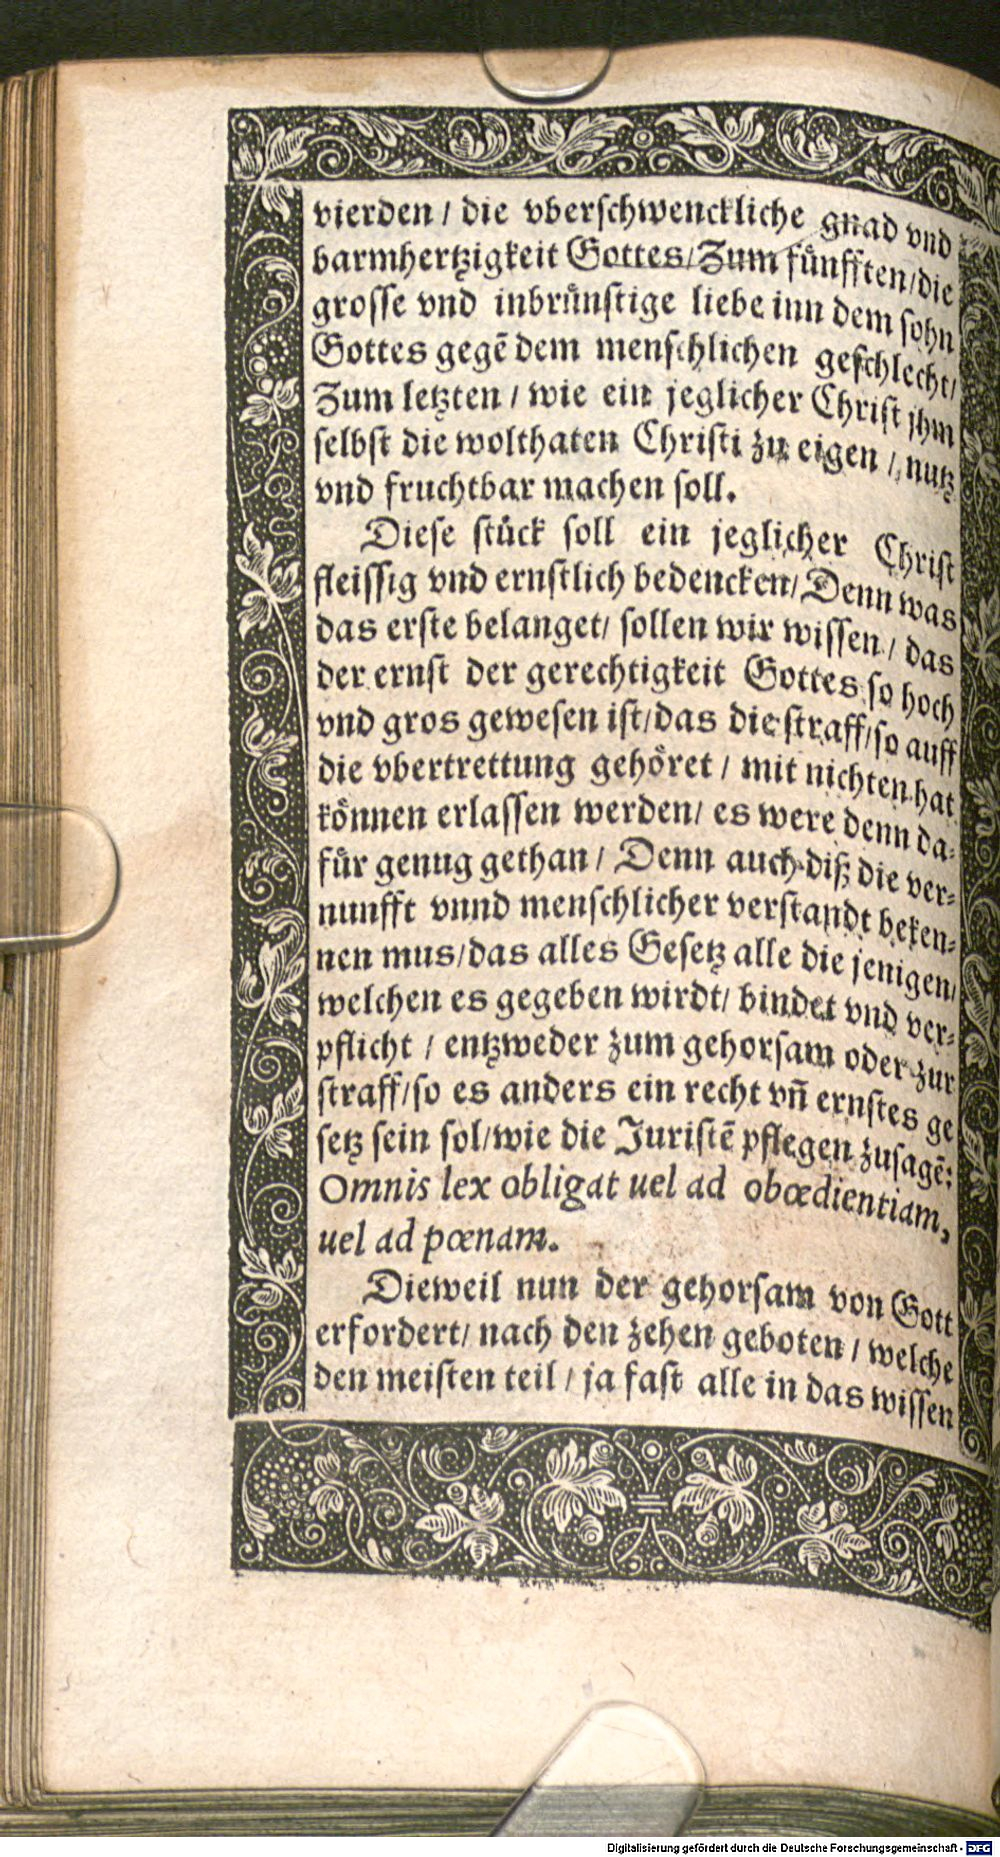 vierden / die vberschwenckliche gnad vnd
barmhertzigkeit Gottes / Zum fůnfften / die
grosse vnd inbrůnstige liebe inn dem sohn
Gottes gegē dem menschlichen geschlecht /
Zum letzten / wie ein jeglicher Christ jhm
selbst die wolthaten Christi zu eigen / nutz
vnd fruchtbar machen soll.
Diese stůck soll ein jeglicher Christ
fleissig vnd ernstlich bedencken / Denn was
das erste belanget / sollen wir wissen / das
der ernst der gerechtigkeit Gottes so hoch
vnd gros gewesen ist / das die straff / so auff
die vbertrettung gehőret / mit nichten hat
kőnnen erlassen werden / es were denn da=
fůr genug gethan / Denn auch diß die ver=
nunfft vnnd menschlicher verstandt beken=
nen mus / das alles Gesetz alle die jenigen /
welchen es gegeben wirdt / bindet vnd ver=
pflicht / entzweder zum gehorsam oder zur
straff / so es anders ein recht vn̄ ernstes ge
setz sein sol / wie die Juristē pflegen zusagē:
Omnis lex obligat uel ad obœdientiam,
uel ad pœnam.
Dieweil nun der gehorsam von Gott
erfordert / nach den zehen geboten / welche
den meisten teil / ja fast alle in das wissen
Digitalisierung gefördert durch die Deutsche Forschungsgemeinschaft - DFG